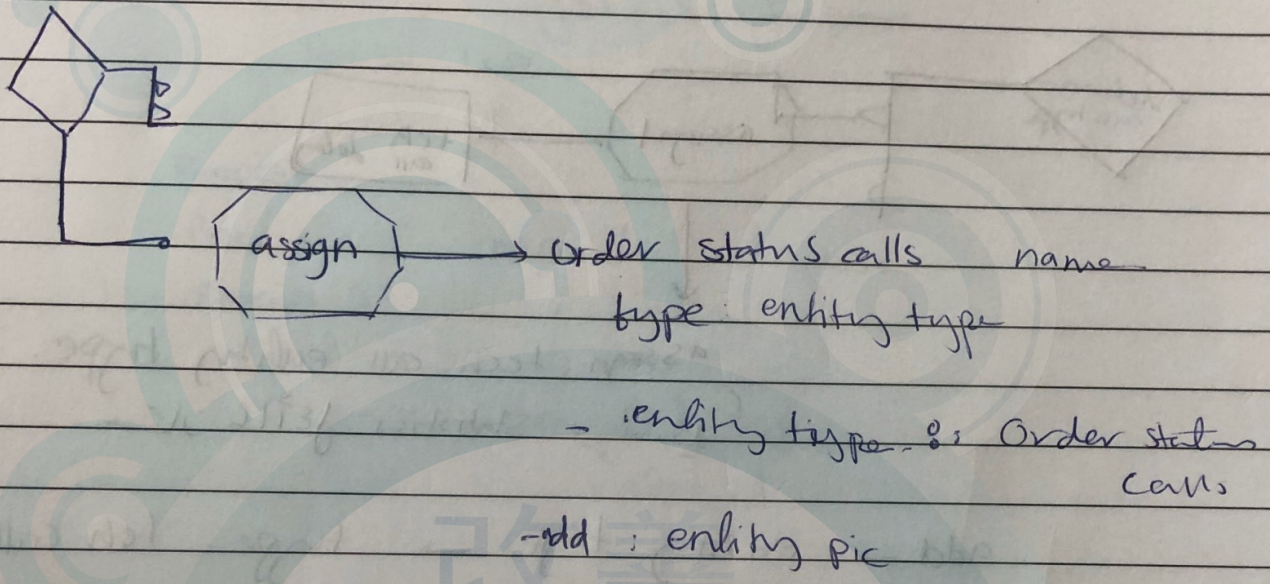 assign
Order status calls name
type: entity type
- entity type: Order status
calls
- add : entity pic